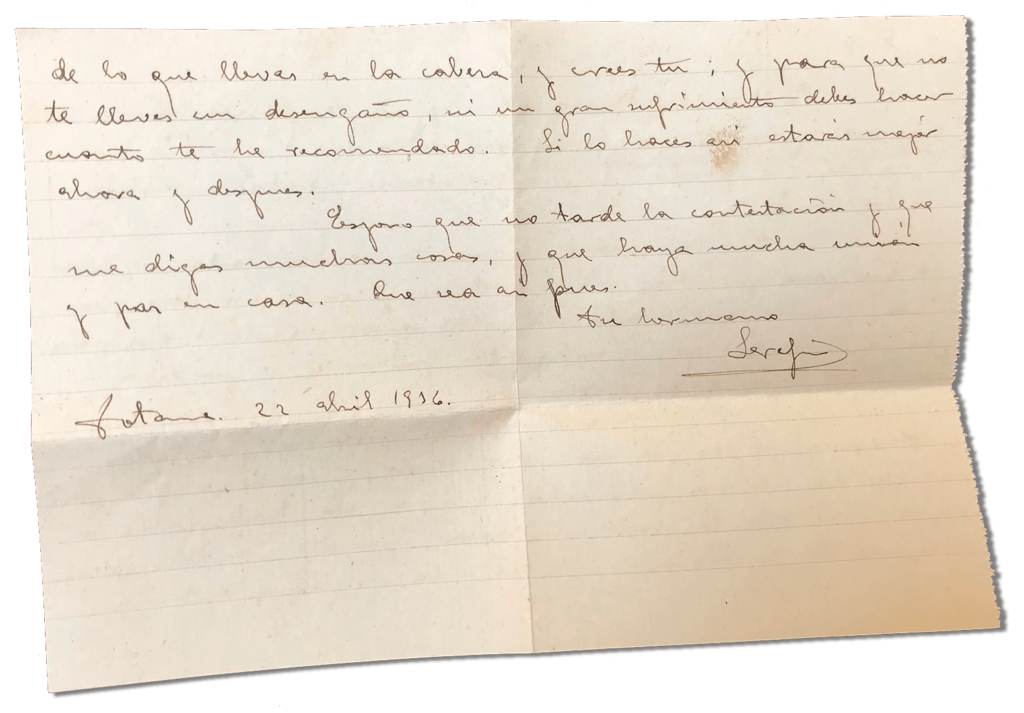 de lo que llevas en la cabeza, y crees tu; y para que no
te lleves un desengaño, ni un gran sufrimiento debes hacer
cuanto te he recomendado. Si lo haces asi estarás mejor
ahora y despues.
Espero que no tarde la contestación y que
me digas muchas cosas, y que haya mucha unión
y paz en casa. Que sea asi pues.
Tu hermano
Serafin
Totana. 22 abril 1936.